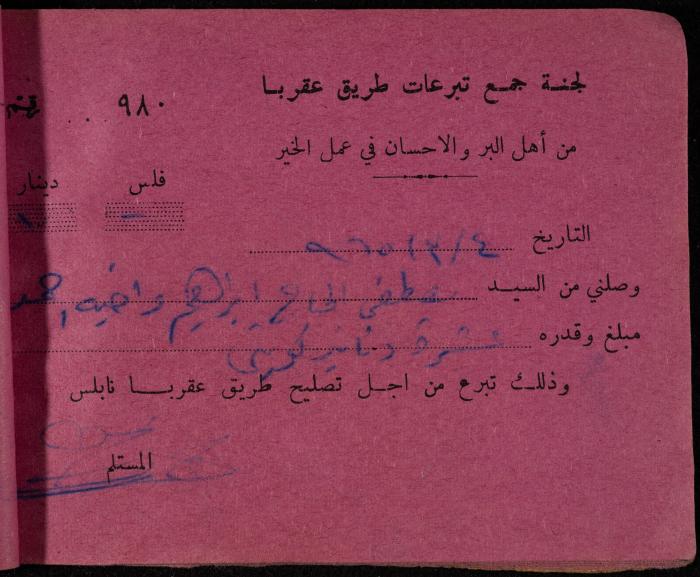 لجنة جمع تبرعات طريق عقربا
٩٨٠
من أهل البر والاحسان في عمل الخير
فلس دينار
التاريخ ٤/٣/٩٦٥
وصلني من السيد مصطفى الحاج ابراهيم واخيه احمد
مبلغ وقدره عشرة دنانير كويتي
وذلك تبرع من اجل تصليح طريق عقربا نابلس
المستلم